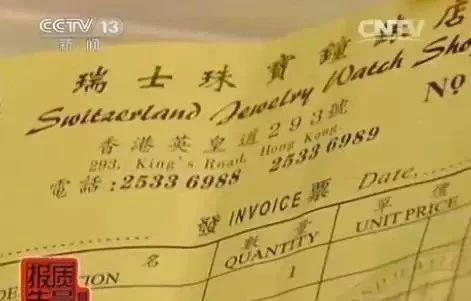 CCTV 13
新闻
CNTV
瑞士珠寶鐘錶店
Switzerland Jewelry Watch Shop
香港英皇道293號
293, King's Road, Hong Kong
電話:2533 6988 2533 6989
No
發 INVOICE 票
Date
名
數量
單價
QUANTITY
UNIT PRICE
1
质量报告